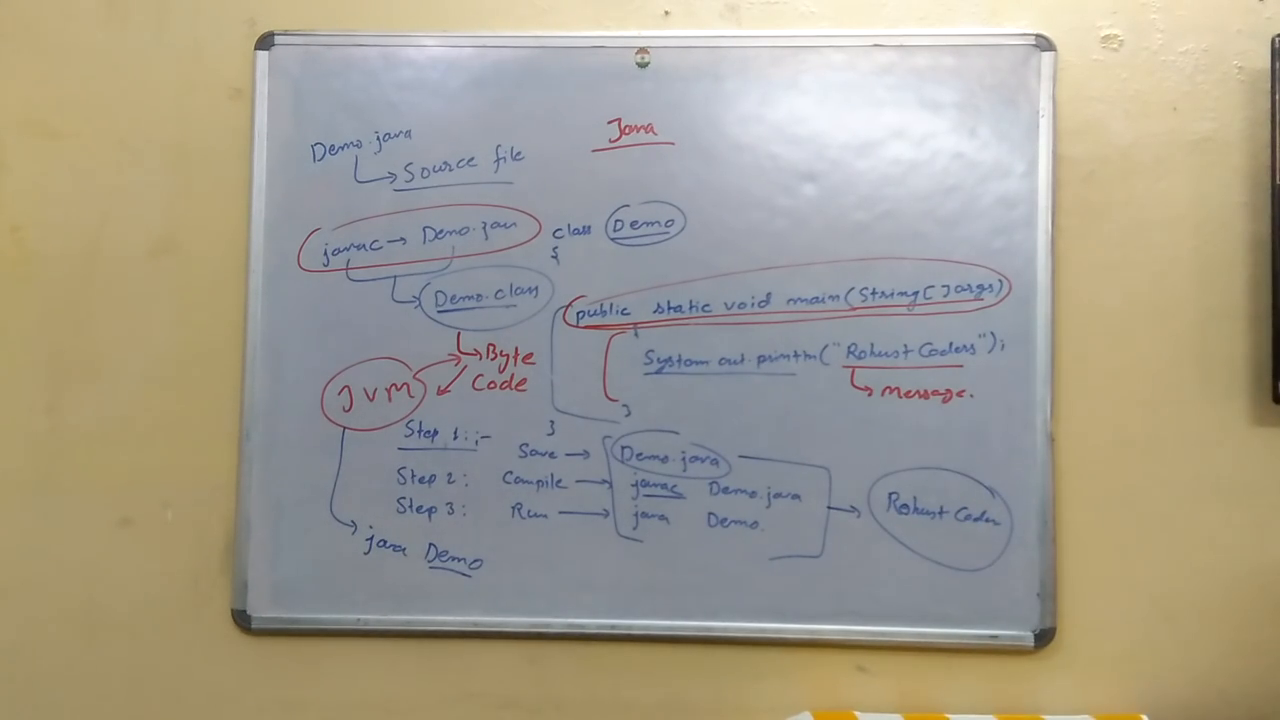 Java
Demo.java
Source file
javac → Demo.java
Demo.class
Byte
Code
JVM
java Demo
class Demo
{
public static void main(String[] args)
{
System.out.println("Robust Coders");
Message.
}
}
Step 1:;-
Save → Demo.java
Step 2: Compile → javac Demo.java
Step 3: Run → java Demo.
Robust Coder